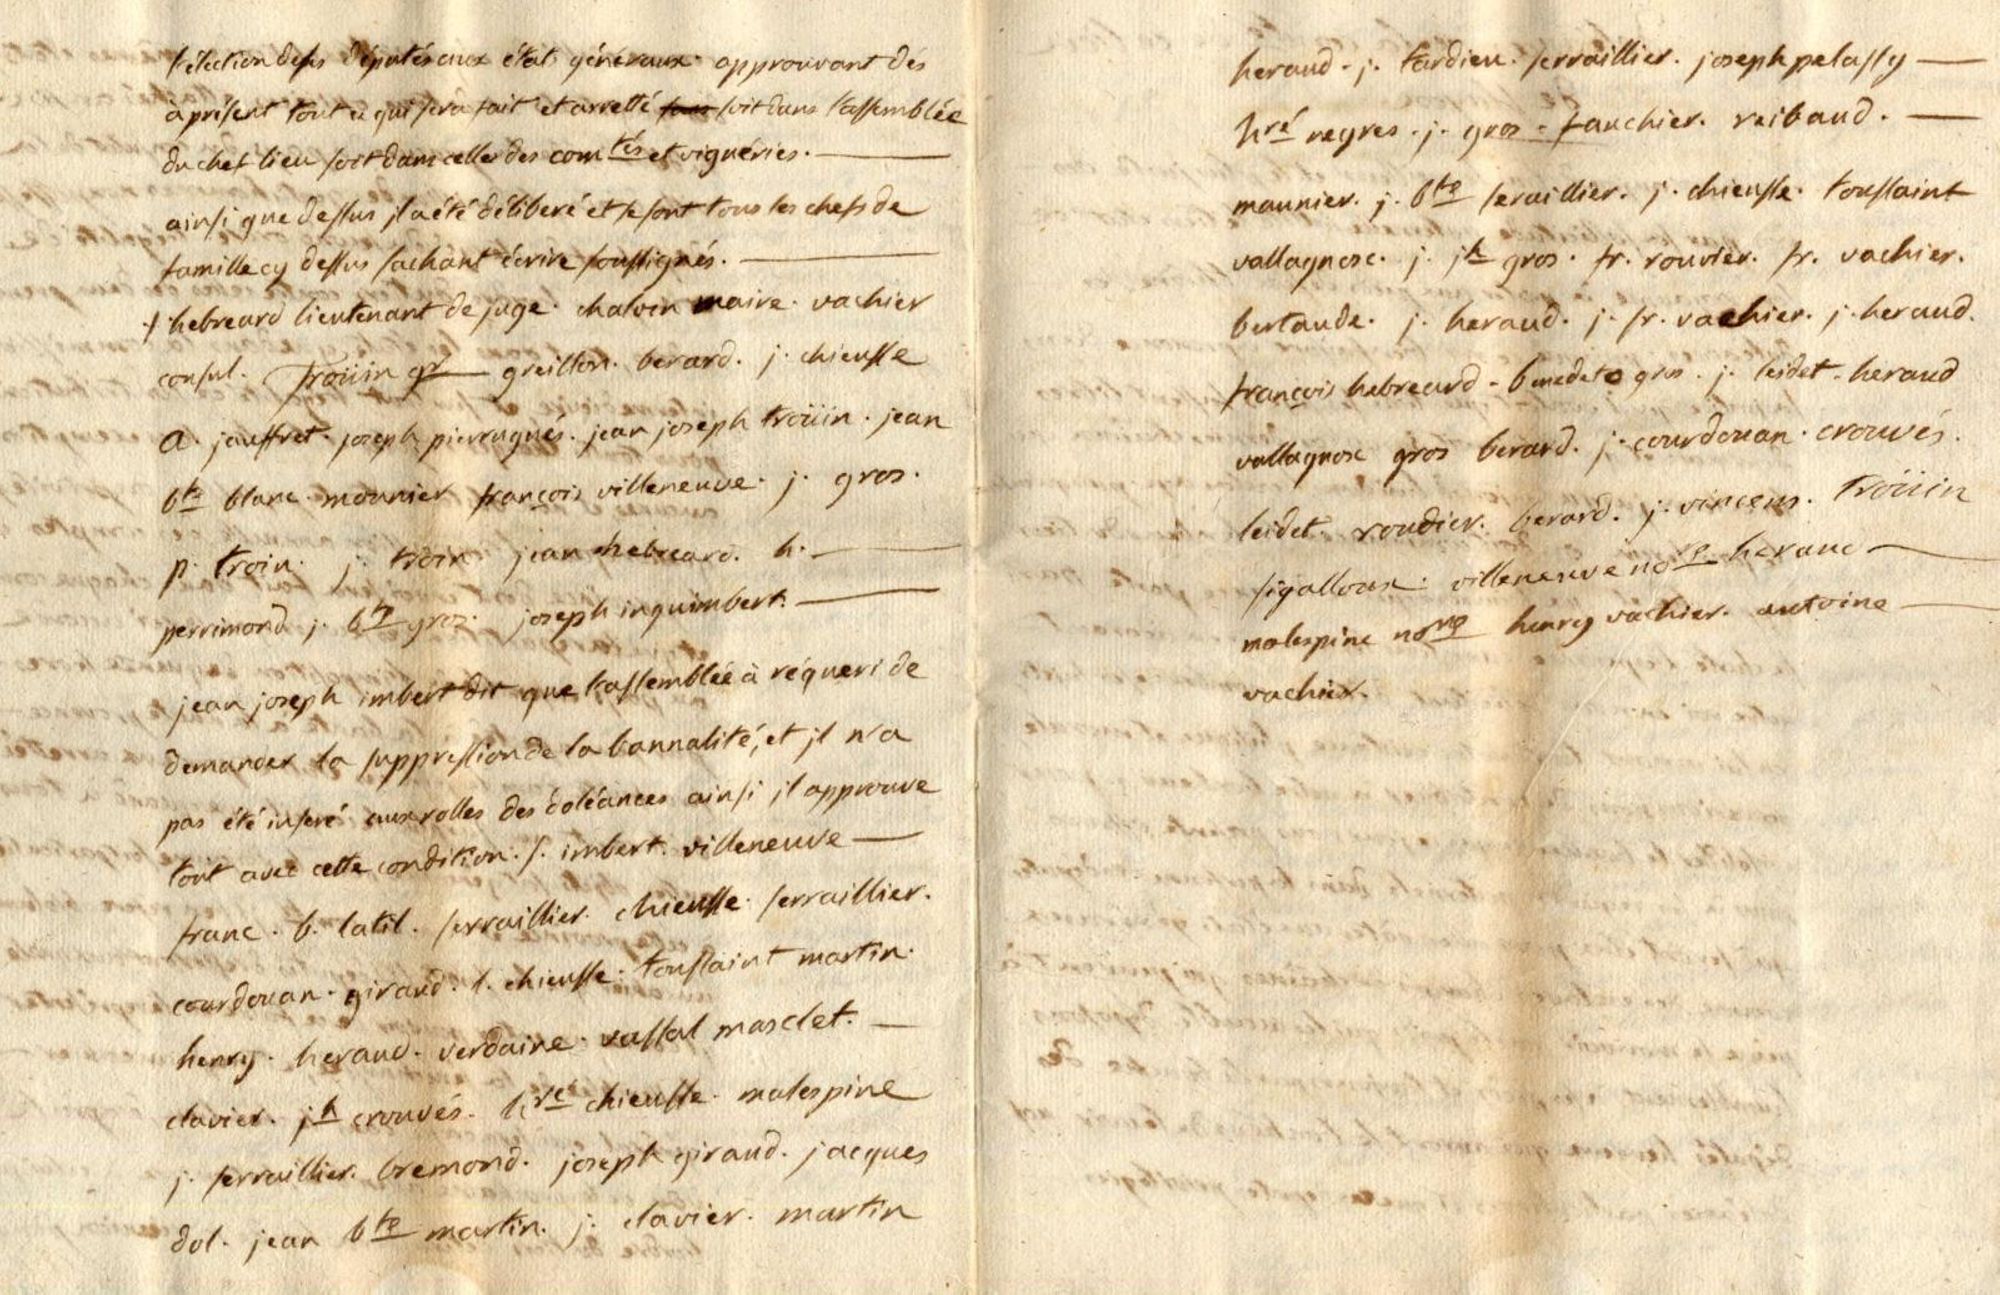 l'élection de ses députés aux état généraux. approuvant dés
à présent tout ce qui sera fait et arretté soit dans l'assemblée
du chef lieu soit dans celles des com^tés et viguéries.
ainsi que dessus il a été déliberé et se sont tous les chefs de
famille cy dessus sachant écrire soussignés.
hebreard lieutenant de juge. chalvin maire. vachier
consul. troüin gr greillon. berard. j. chieusse
a. jauffret. joseph pierrugués. jean joseph troüin. jean
b^te blanc. mounier françois villeneuve. j. gros.
p. troin. j. troin. jean hebreard. h.
perrimond j. b^te gros. joseph inguimbert.
jean joseph imbert dit que l'assemblée à réqueri de
demander la suppression de la bannalité, et jl n'a
pas été inseré aux rolles des doléances ainsi jl approuve
tout avec cette condition. s. imbert. villeneuve
franc. b. latil. serraillier. chieusse. serraillier.
courdouan. giraud. l. chieusse. toussaint martin.
henry. heraud. verdaine. vassal masclet.
clavier. j^h crouvés. h^ré chieusse. malespine
j. serraillier. bremond. joseph giraud. jacques
dol. jean b^te martin. j. clavier. martin
heraud. j. tardieu. serraillier. joseph pelassy
h^ré negres. j. gros. fauchier. reibaud.
maunier. j. b^te seraillier. j. chieusse. toussaint
vallagnosc. j. j^h gros. fr. rouvier. fr. vachier.
bertaude. j. heraud. j. fr. vachier. j. heraud.
françois hebreard. benedeto gros. j. leidet. heraud
vallagnosc gros berard. j. courdouan. crouvés.
leidet. roudier. berard. j. vincens. troüin
sigalloux. villeneuve no^re heraud
malespine no^re henry vachier. antoine
vachier.